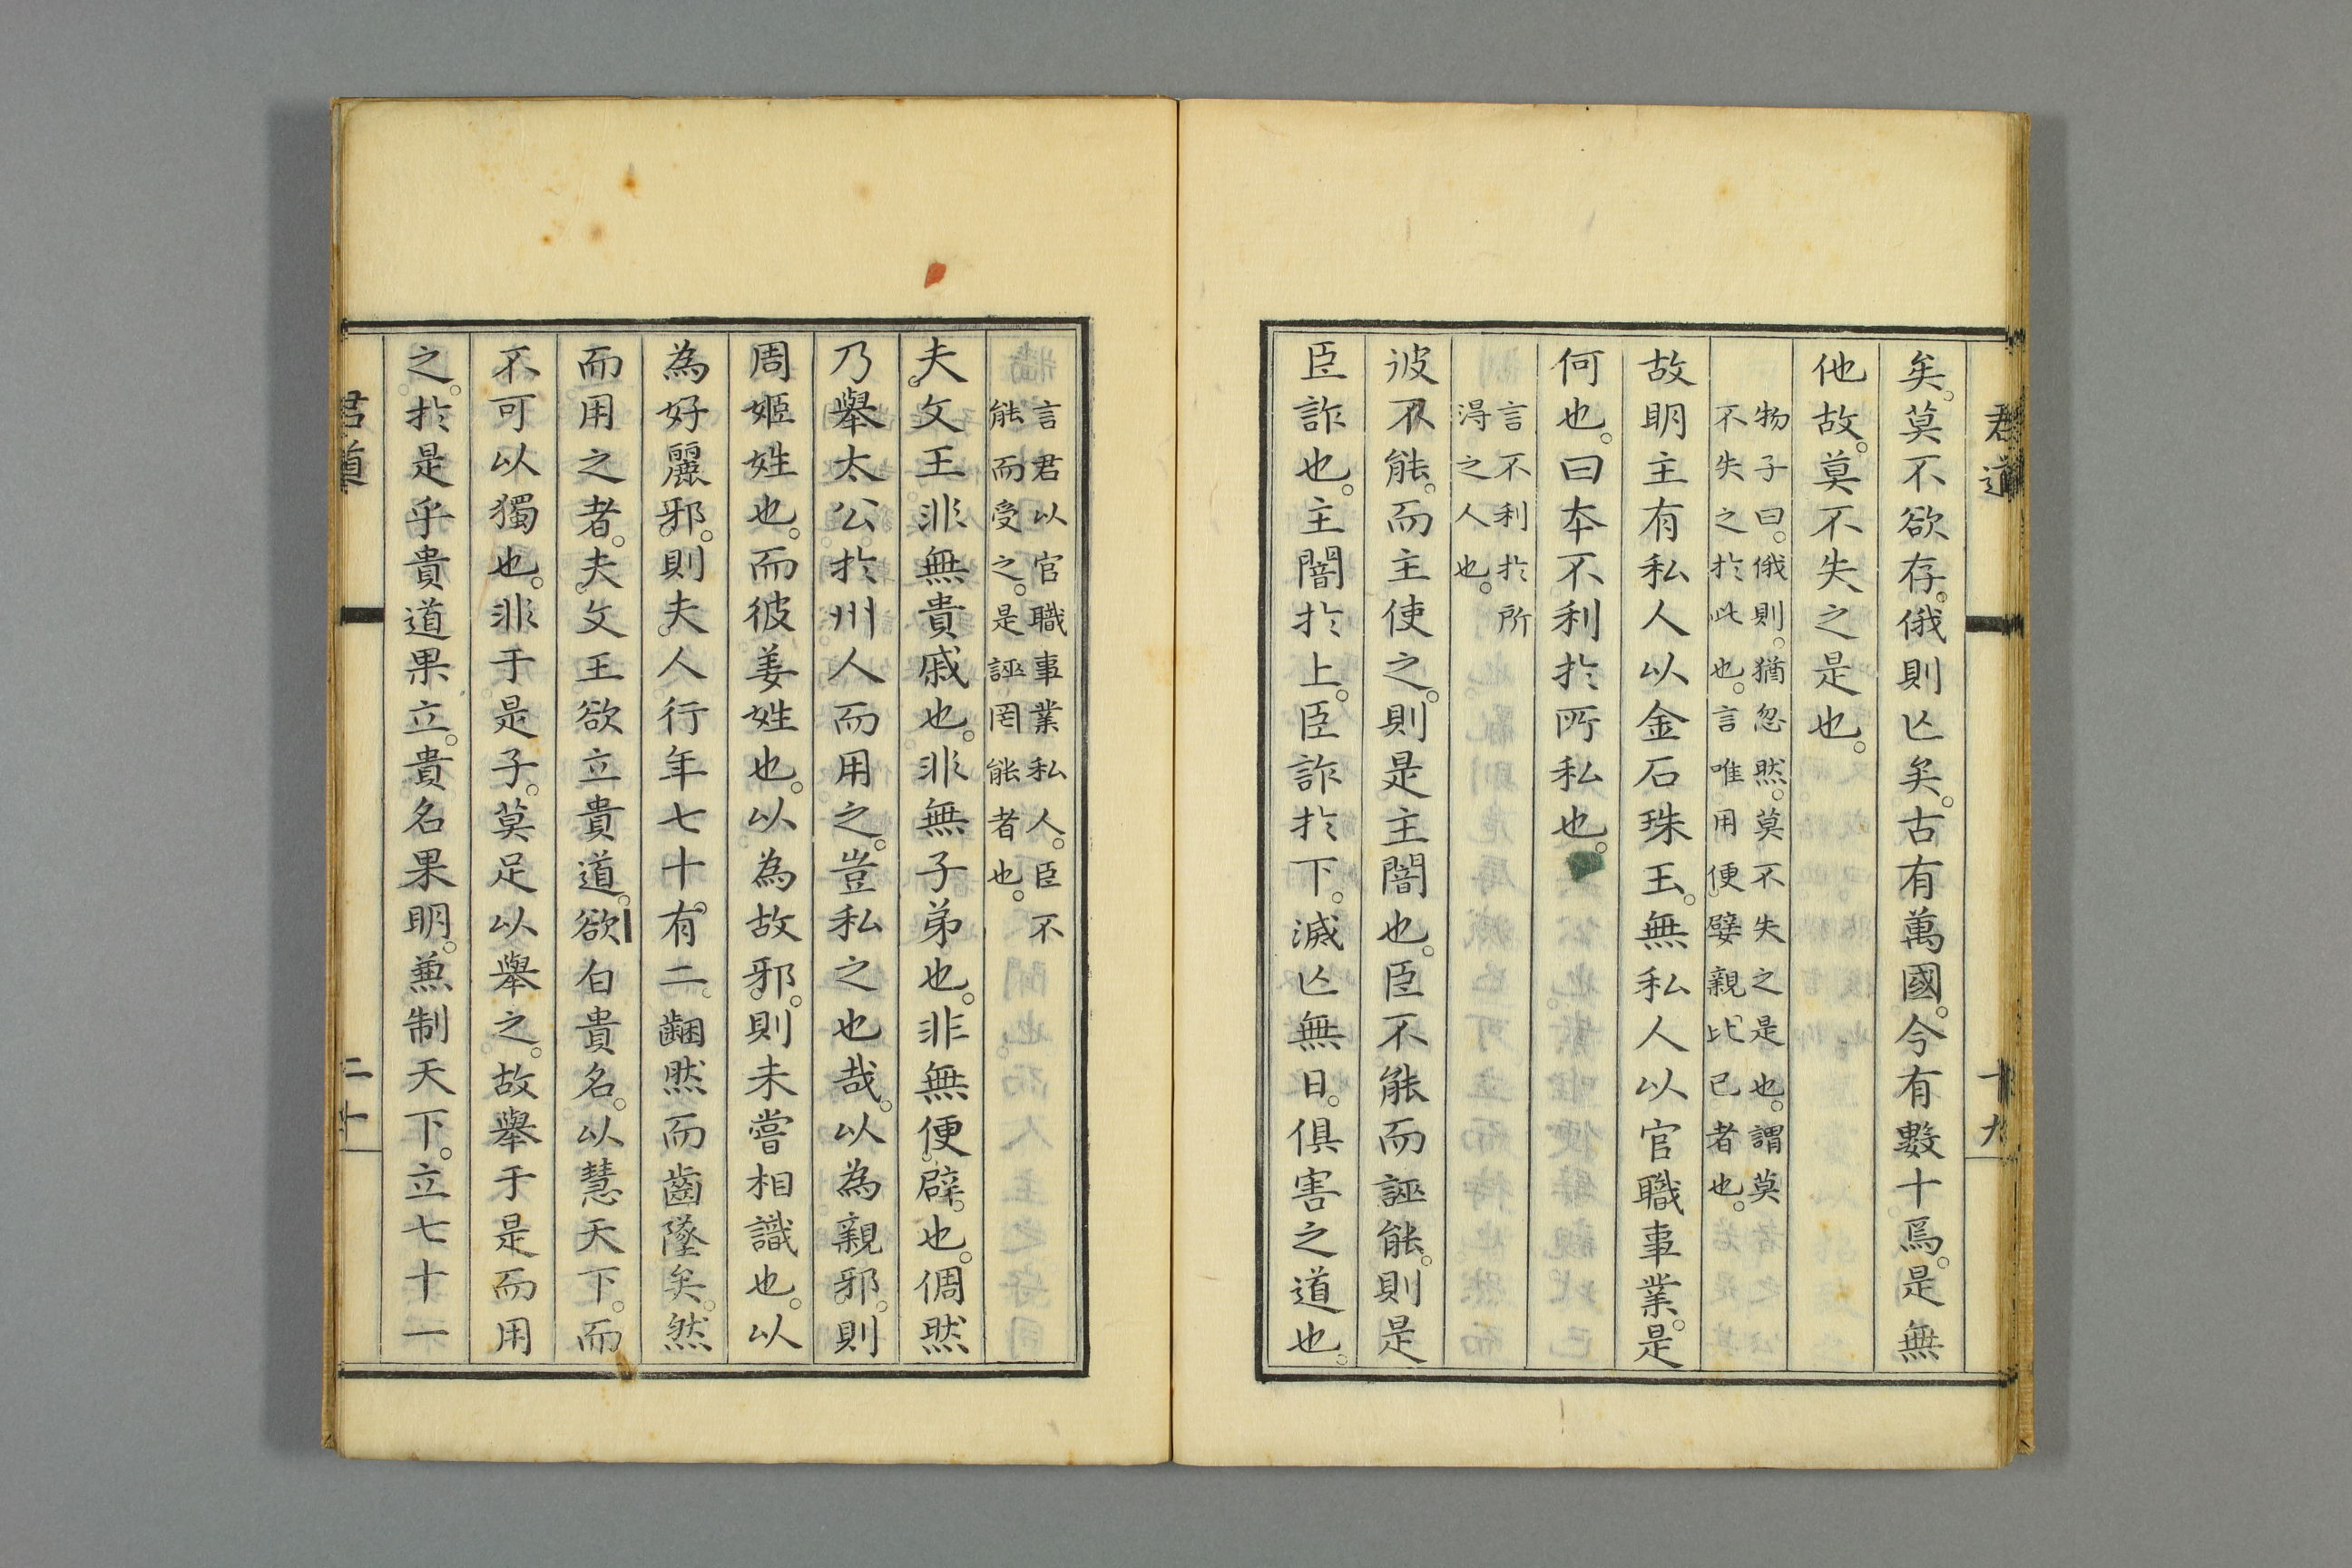 君道
十九
矣。莫不欲存。俄則亾矣。古有萬國。今有數十焉。是無
他故。莫不失之是也。
物子曰。俄則。猶忽然。莫不失之是也。謂莫
不失之於此也。言唯用便嬖親比己者也。
故明主有私人以金石珠玉。無私人以官職事業。是
何也。曰本不利於所私也。
言不利於所
得之人也。
彼不能。而主使之。則是主闇也。臣不能而誣能。則是
臣詐也。主闇於上。臣詐於下。滅亾無日。俱害之道也。
言君以官職事業私人。臣不
能而受之。是誣罔能者也。
夫文王非無貴戚也。非無子弟也。非無便辟也。倜然
乃舉太公於州人而用之。豈私之也哉。以為親邪。則
周姬姓也。而彼姜姓也。以為故邪。則未嘗相識也。以
為好麗邪。則夫人行年七十有二。齫然而齒墬矣。然
而用之者。夫文王欲立貴道。欲白貴名。以慧天下。而
不可以獨也。非于是子。莫足以舉之。故舉于是而用
之。於是乎貴道果立。貴名果明。兼制天下。立七十一
君道
二十